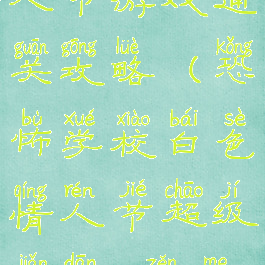 guān gōng lüè kǒng
关攻略(恐
bù xué xiào bái sè
怖学校白色
qíng rén jié chāo jí
情人节超级
jiǎn dān zěn me